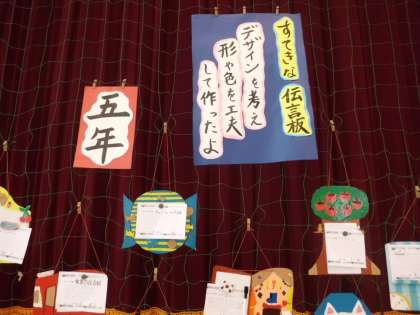 すてきな 伝言板
デザインを考え
形や色を工夫
して作ったよ
五年